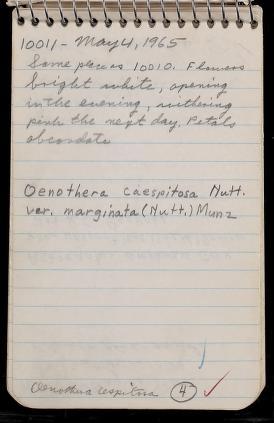 10011 - May 4, 1965
Same place as 10010. Flowers
bright white, opening
in the evening, withering
pink the next day. Petals
obcordate
Oenothera caespitosa Nutt.
var. marginata (Nutt.) Munz
Oenothera cespitosa 4